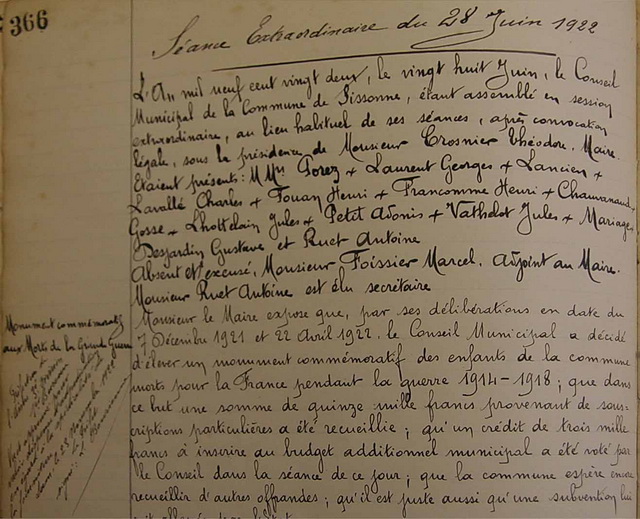 366
Séance Extraordinaire du 28 Juin 1922
L'An mil neuf cent vingt deux, le vingt huit Juin, le Conseil
Municipal de la Commune de Sissonne, étant assemblé en session
extraordinaire, au lieu habituel de ses séances, après convocation
légale, sous la présidence de Monsieur Crosnier Théodore, Maire.
Etaient présents: MMrs Porez + Laurent Georges + Lancien +
Lavallé Charles + Fouan Henri + Francomme Henri + Chauvanaud +
Gosse + Lhottelain Jules + Petit Adonis + Vathelot Jules + Mariage
Desjardin Gustave et Ruet Antoine
Absent et excusé, Monsieur Foissier Marcel, Adjoint au Maire.
Monsieur Ruet Antoine est élu secrétaire
Monument commémoratif
aux Morts de la Grande Guerre
Monsieur le Maire expose que, par ses délibérations en date du
7 Décembre 1921 et 22 Avril 1922, le Conseil Municipal a décidé
d'élever un monument commémoratif des enfants de la commune
morts pour la France pendant la guerre 1914-1918; que dans
ce but une somme de quinze mille francs provenant de sous-
criptions particulières a été recueillie; qu'un crédit de trois mille
francs à inscrire au budget additionnel municipal a été voté par
le Conseil dans la séance de ce jour; que la commune espère encore
recueillir d'autres offrandes; qu'il est juste aussi qu'une subvention lui